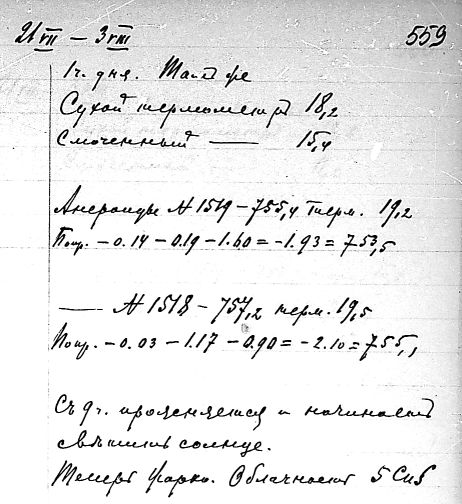 21 VII — 3 VIII 559
1 ч. дня.
Сухой термометръ 18,2
Смоченный — 15,4
Анероиды № 1519 – 755,4 терм. 19,2
Попр. – 0.14 – 0.19 – 1.60 = – 1.93 = 753,5
— № 1518 – 757,2 терм. 19,5
Попр. – 0.03 – 1.17 – 0.90 = – 2.10 = 755,1
Съ 9 ч. проясняется и начинаетъ
свѣтить солнце.
Теперь жарко. Облачность 5